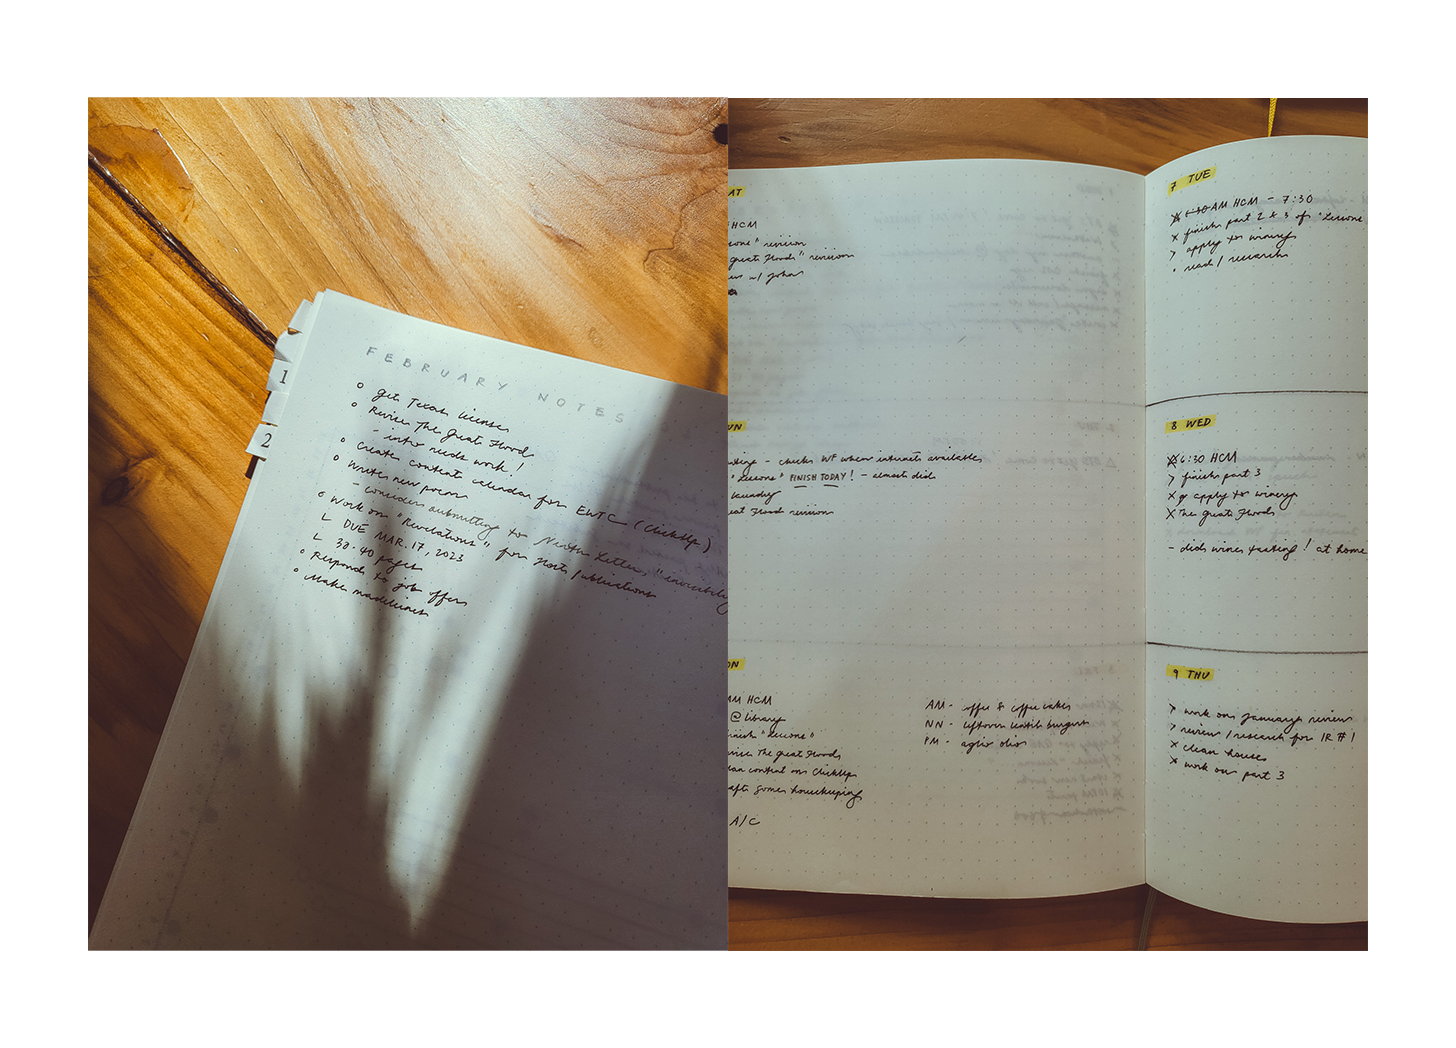 1
2
FEBRUARY NOTES
get Texas license
Revise The Great Flood
- intro needs work!
Create content calendar for EWTC (ClickUp)
Write new poem
- consider submitting to North Letter, "invisibility
Work on "Revelations" for Host Publications
L DUE MAR. 17, 2023
L 30-40 pages
Respond to job offers
Make madeleines
AT
HCM
revision
great Floods" revision
w/ Johan
UN
- check WF when internet available
"Lessons" FINISH TODAY! - almost did
laundry
Flood revision
ON
AM HCM
@ library
finish "Lessons"
The Great Floods
content on ClickUp
some housekeeping
A/C
AM - coffee cakes
NN - leftover lentil burgers
PM - aglio olio
7 TUE
X 6:30 AM HCM - 7:30
X finish part 2 & 3 of "Lessons
> apply to winery
• read / research
8 WED
X 6:30 HCM
> finish part 3
X apply to winery
X The Great Floods
- did wine tasting! at home
9 THU
> work on January review
> review / research for IR #1
X clean house
X work on part 3